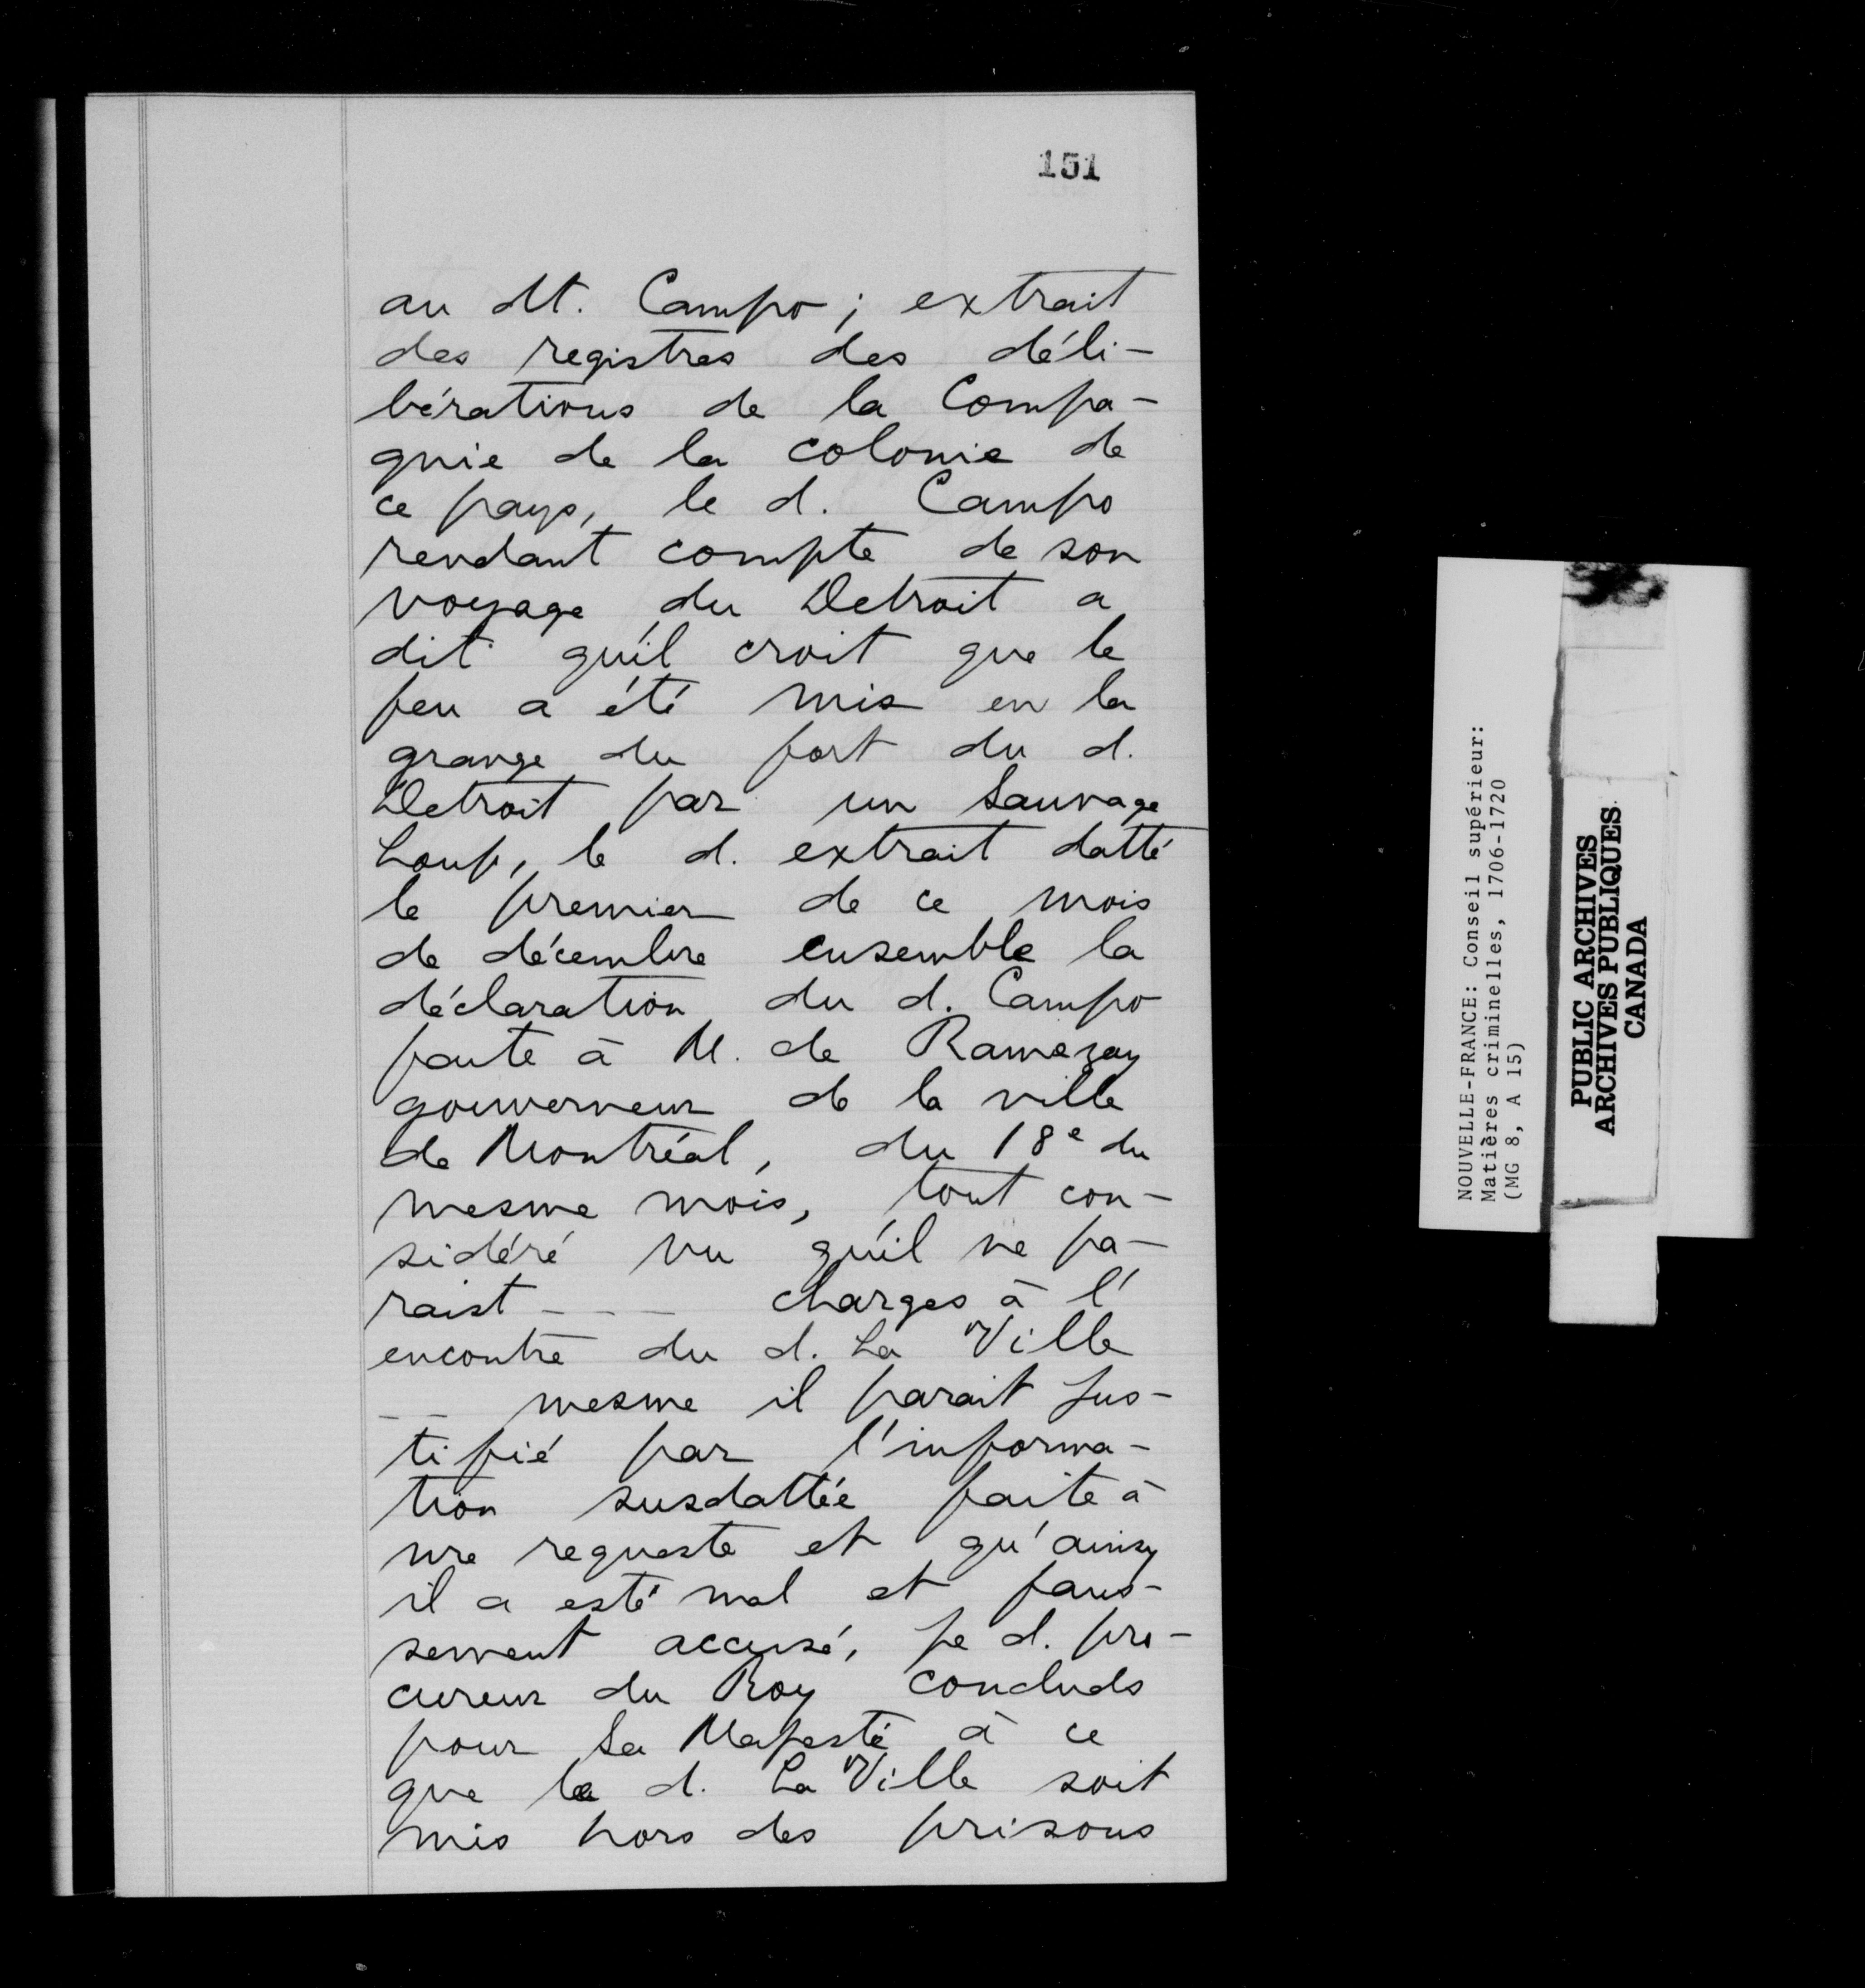 151
au dt. Campo; extrait
des registres des déli-
bérations de la Compa-
gnie de la colonie de
ce pays, le d. Campo
rendant compte de son
voyage du Detroit a
dit qu'il croit que le
feu a été mis en la
grange du fort du d.
Detroit par un Sauvage
Loup, le d. extrait datté
le premier de ce mois
de décembre ensemble la
déclaration du d. Campo
faite à M. de Ramezay
gouverneur de la ville
de Montréal, du 18e du
mesme mois, tout con-
sidéré vu qu'il ne pa-
raist - - - charges à l'
encontre du d. La Ville
- - mesme il parait jus-
tifié par l'informa-
tion susdattée faite à
nre requeste et qu'ainsy
il a esté mal et faus-
sement accusé, je d. pro-
cureur du Roy concluds
pour Sa Majesté à ce
que le d. La Ville soit
mis hors des prisons
NOUVELLE-FRANCE: Conseil supérieur:
Matières criminelles, 1706-1720
(MG 8, A 15)
PUBLIC ARCHIVES
ARCHIVES PUBLIQUES
CANADA